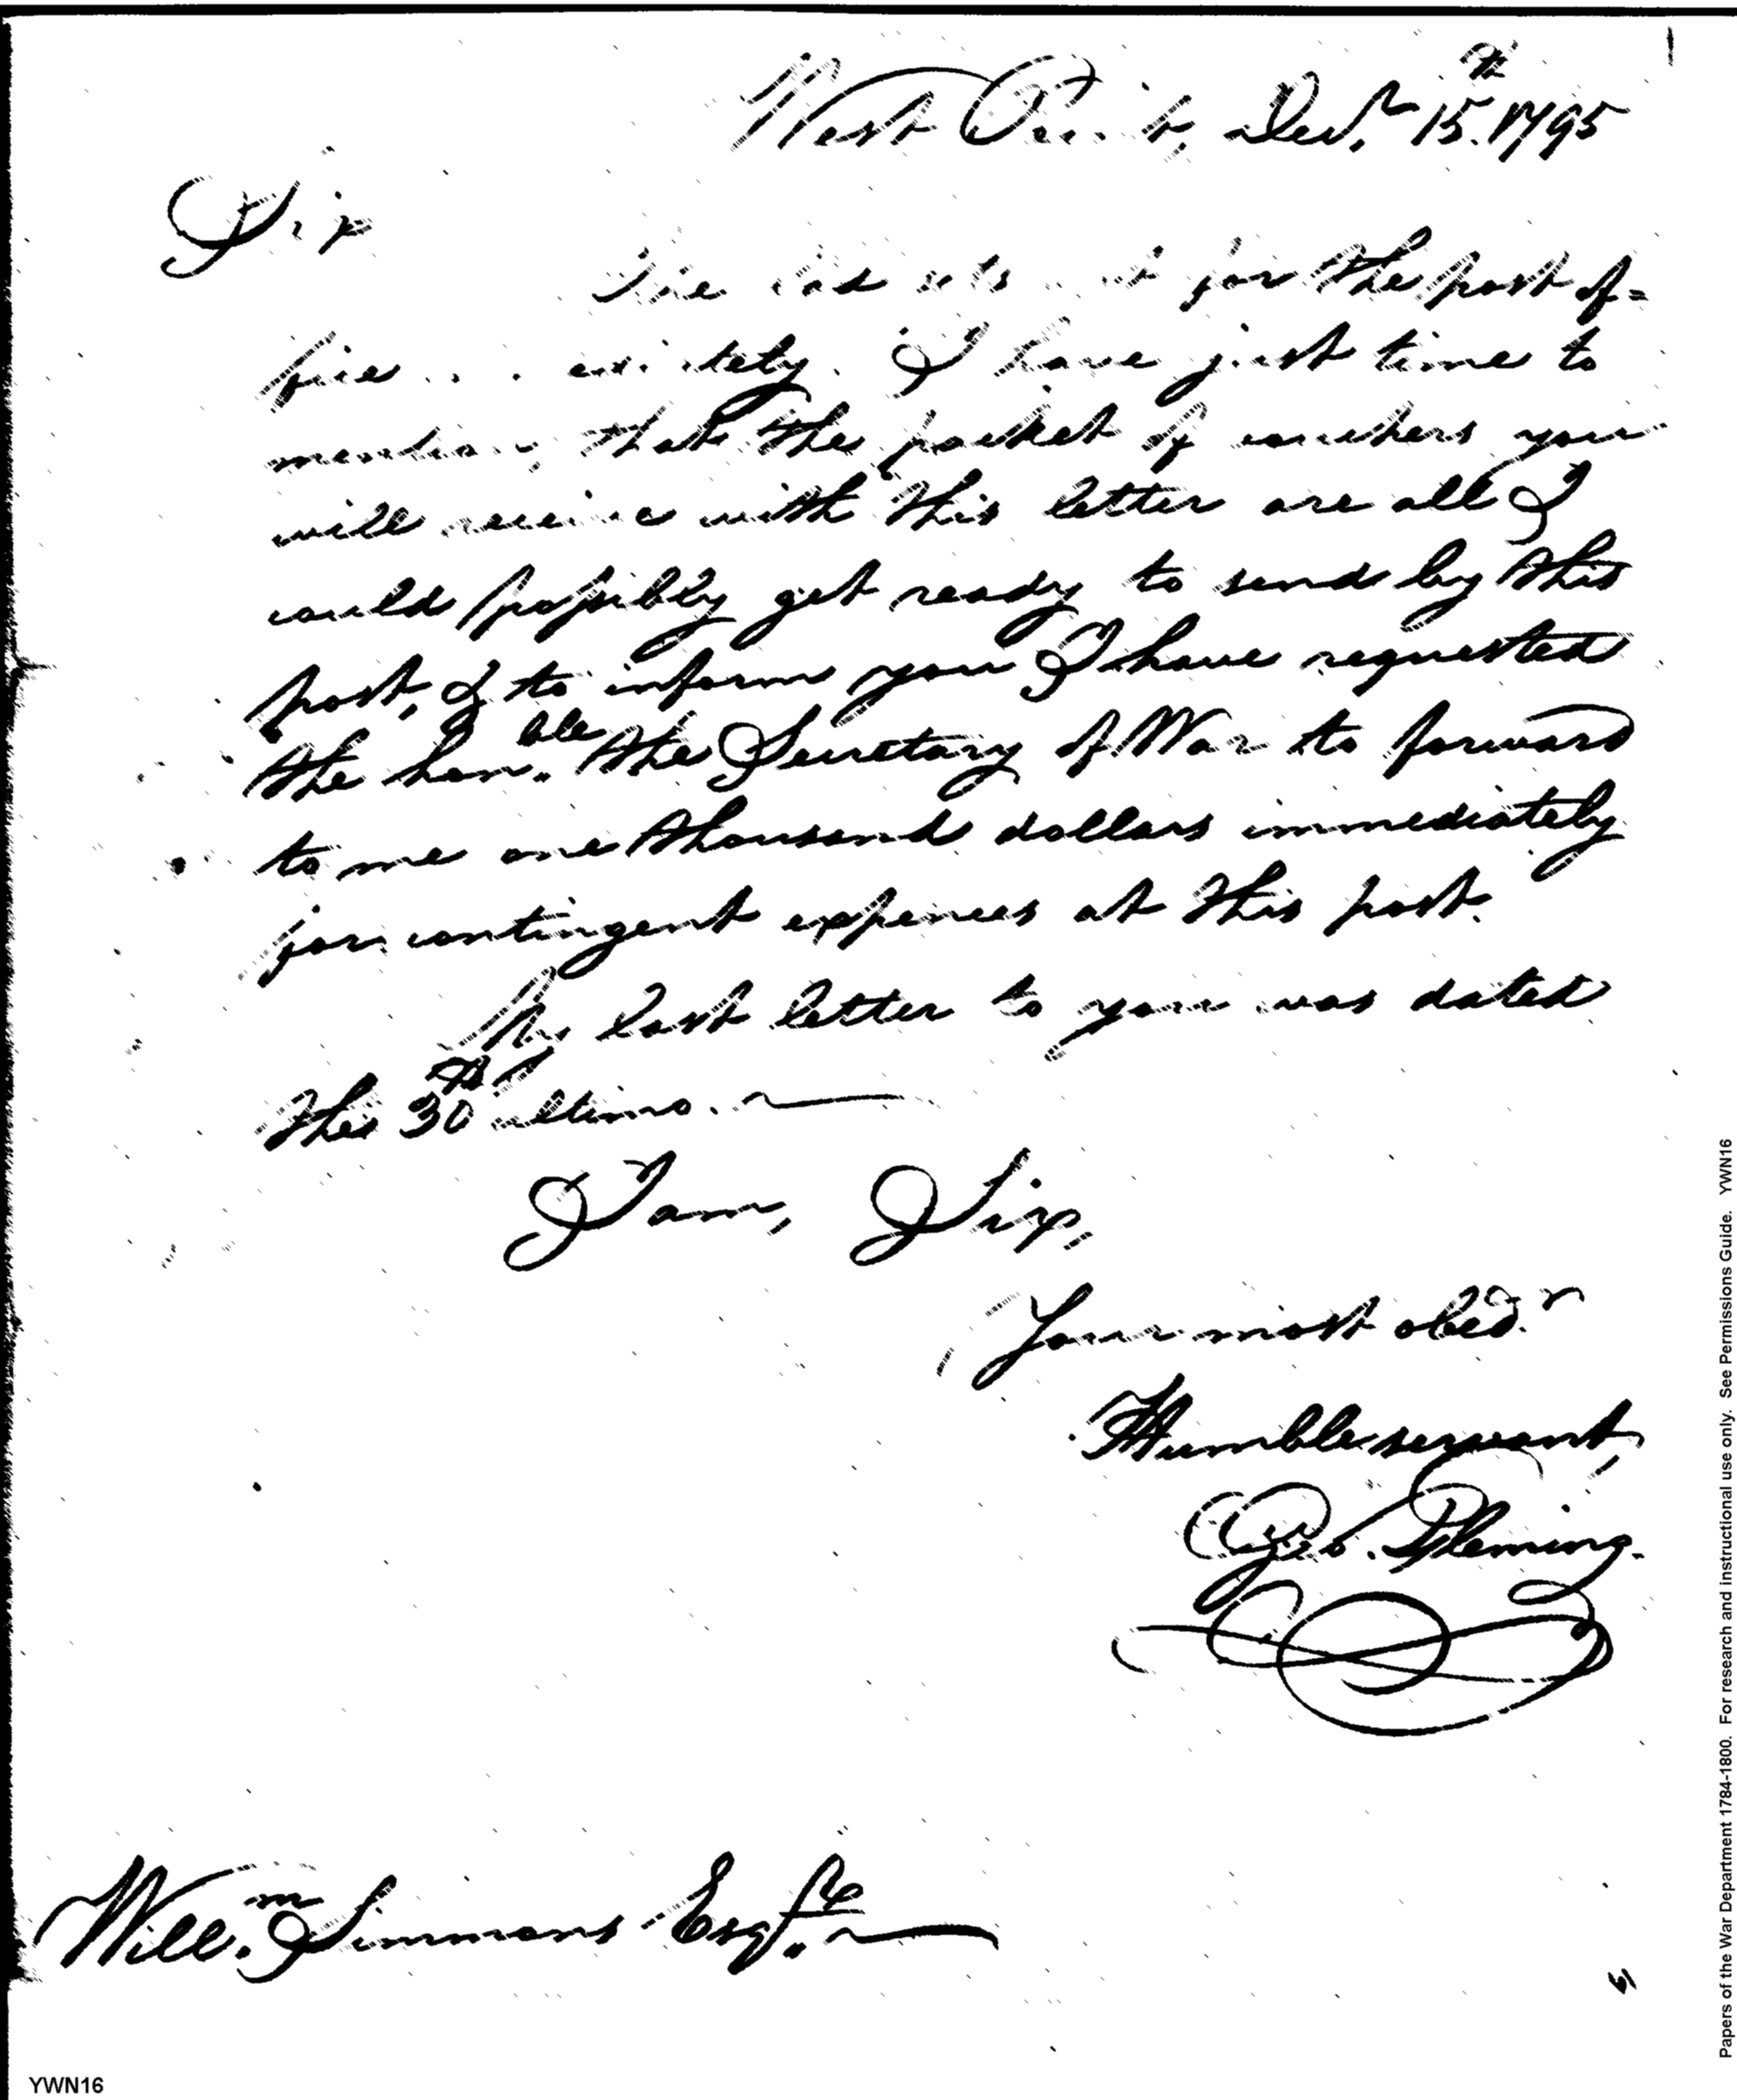 West Point, Decr. 15th. 1795
Sir
for the post of=
fice I have just time to
mention, that the packet of vouchers you
will receive with this letter are all I
could possibly get ready to send by this
post, & to inform you I have requested
the honble. the Secretary of War to forward
to me one thousand dollars immediately
for contingent expences at this post.
My last letter to you was dated
the 30th ultimo.
I am, Sir,
Your most obedr.
Humble servant,
Geo. Fleming.
Willm. Simmons Esqre.
YWN16
Papers of the War Department 1784-1800. For research and instructional use only. See Permissions Guide. YWN16